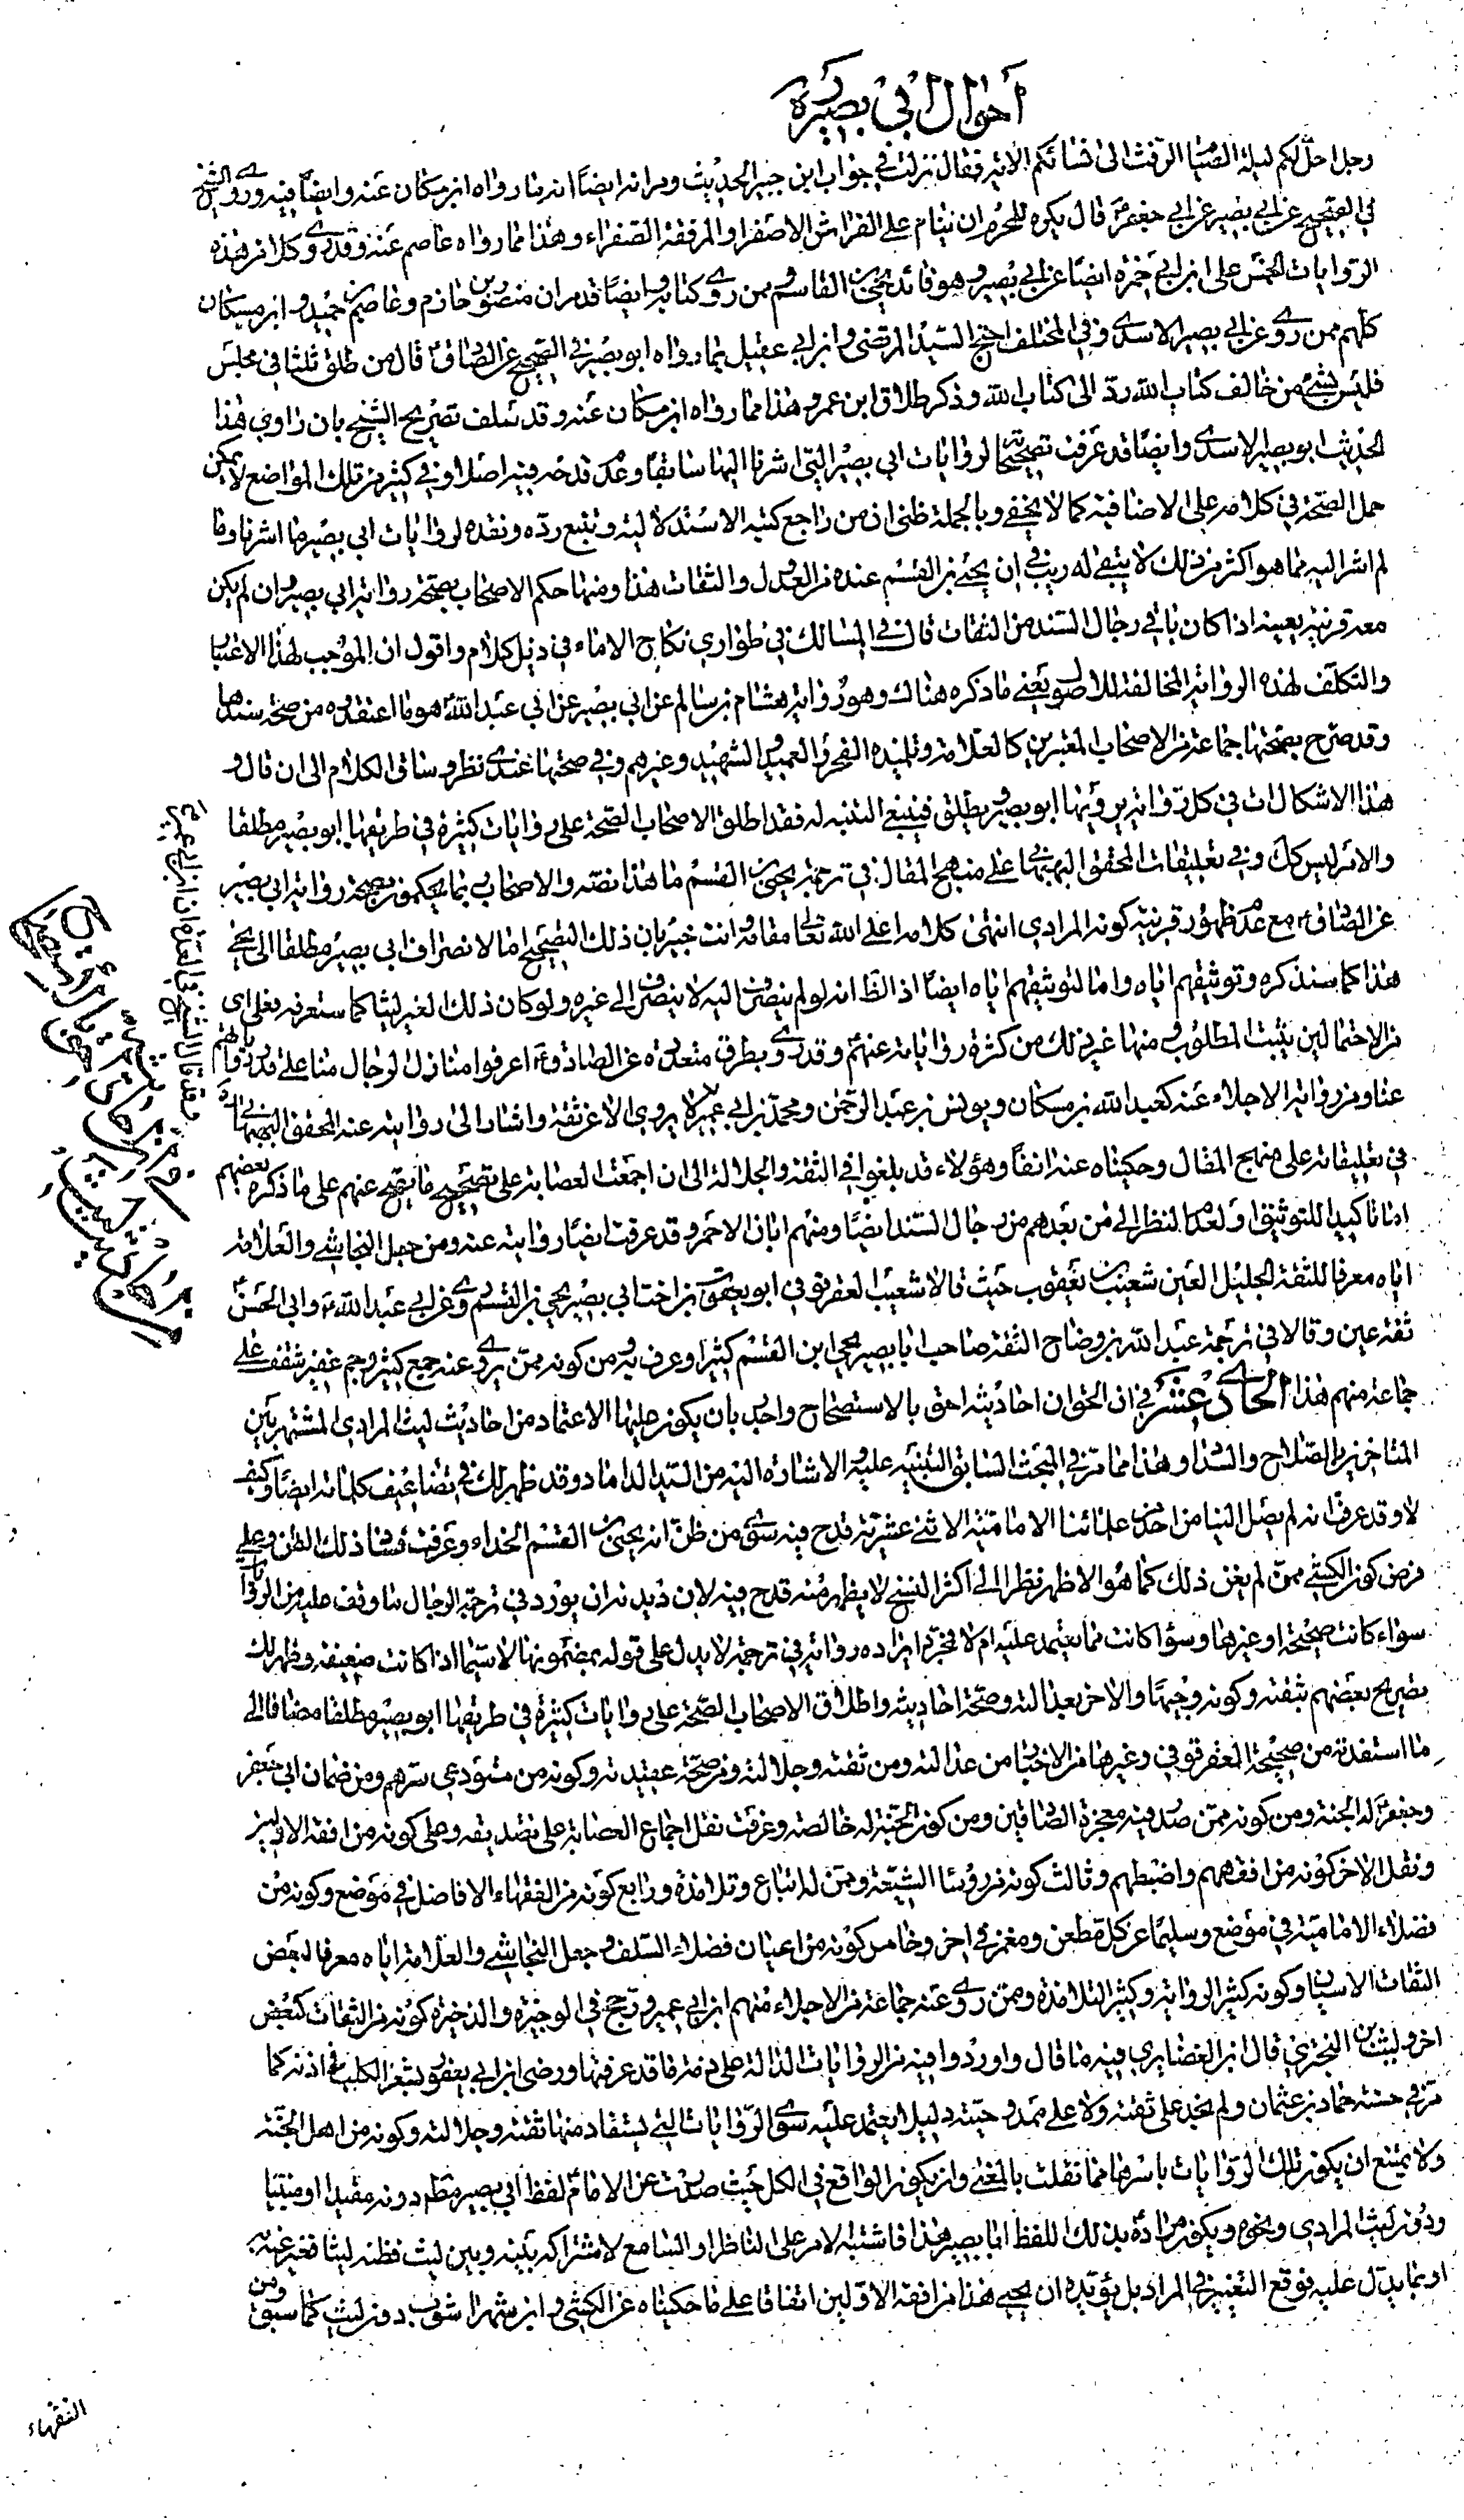 احوال ابي بصير
وجل احل لكم ليلة الصيام الرفث الى نسائكم الاية فقال نزلت في خوات ابن جبير الحديث ومر انه ايضا انه مما رواه ابن مسكان عنه وايضا فيه وروى الشيخ
في الصحيح عن ابي بصير عن ابي جعفر قال يكره للمحرم ان ينام على الفراش الاصفر والمرفقة الصفراء وهذا مما رواه عاصم عنه وقد روى وكلا من هذه
الروايات الخمس على ابن ابي حمزة ايضا عن ابي بصير وهو قائد يحيى بن القاسم وممن روى كتابه وايضا قد مر ان منصور بن حازم وعاصم بن حميد وابن مسكان
كلهم ممن روى عن ابي بصير الاسدي وفي المختلف احتج السيد المرتضى وابن ابي عقيل بما رواه ابو بصير في الصحيح عن الصادق قال من طلق ثلثا في مجلس
فليس بشئ من خالف كتاب الله رد الى كتاب الله وذكر طلاق ابن عمر وهذا مما رواه ابن مسكان عنه وقد سلف تصريح الشيخ بان راوي هذا
الحديث ابو بصير الاسدي وايضا قد عرفت تصحيحاته لروايات ابي بصير التي اشرنا اليها سابقا وعدم قدحه فيه اصلا وفي كثير من تلك المواضع لا يمكن
حمل الصحة في كلامه على الاضافية كما لا يخفى وبالجملة ظني ان من راجع كتبه الاستدلالية وتتبع رده ونقده لروايات ابي بصير ما اشرنا وما
لم اشر اليه مما هو اكثر من ذلك لا يبقى له ريب في ان يحيى بن القسم عنده من العدول والثقات هذا ومنها حكم الاصحاب بصحة رواية ابي بصير وان لم يكن
معه قرينة معينة اذا كان باقي رجال السند من الثقات قال في المسالك في طواري نكاح الاماء في ذيل كلام واقول ان الموجب لهذا الاعتبار
والتكلف لهذه الرواية المخالفة للاصول يعني ما ذكره هناك وهو رواية هشام بن سالم عن ابي بصير عن ابي عبد الله هو ما اعتقدوه من صحة سندها
وقد صرح بصحتها جماعة من الاصحاب المعتبرين كالعلامة وتلميذه الفخر والعميد والشهيد وغيرهم وفي صحتها عندي نظر وساق الكلام الى ان قال و
هذا الاشكال ات في كل رواية يرويها ابو بصير ويطلق فينبغي التنبه له فقد اطلق الاصحاب الصحة على روايات كثيرة في طريقها ابو بصير مطلقا
والامر ليس كك وفي تعليقات المحقق البهبهاني على منهج المقال في ترجمة يحيى بن القسم ما هذا نصه والاصحاب ربما يحكمون بصحة رواية ابي بصير
عن الصادق مع عدم ظهور قرينة كونه المرادي انتهى كلامه اعلى الله تعالى مقامه وانت خبير بان ذلك التصحيح اما لانصراف ابي بصير مطلقا الى يحيى
هذا كما سنذكره وتوثيقهم اياه واما لتوثيقهم اياه ايضا اذ الظ انه لو لم ينصرف اليه لا ينصرف الى غيره ولو كان ذلك الغير ليثا كما ستعرفه فعلى اي
من الاحتمالين يثبت المطلوب ومنها غير ذلك من كثرة رواياته عنهم وقد روي بطرق متعددة عن الصادق اعرفوا منازل الرجال منا على قدر رواياتهم
عنا ومن رواية الاجلاء عنه كعبد الله بن مسكان ويونس بن عبد الرحمن ومحمد بن ابي عمير لا يروي الا عن ثقة واشار الى روايته عنه المحقق البهبهاني
في تعليقاته على منهج المقال وحكيناه عنه انفا وهؤلاء قد بلغوا في الثقة والجلالة الى ان اجمعت العصابة على تصحيح ما يصح عنهم على ما ذكره بعضهم
اما تاكيدا للتوثيق او لعدم النظر الى من بعدهم من رجال السند ايضا ومنهم ابان الاحمر وقد عرفت ايضا روايته عنه ومن جعل النجاشي والعلامة
اياه معرفا للثقة الجليل العين شعيب بن يعقوب حيث قالا شعيب العقرقوفي ابو يعقوب ابن اخت ابي بصير يحيى بن القسم روى عن ابي عبد الله وابي الحسن
ثقة عين وقالا في ترجمة عبد الله بن وضاح الثقة صاحب ابا بصير يحيى ابن القسم كثيرا وعرف به ومن كونه ممن يروي عنه جمع كثير وجم غفير ستقف على
جماعة منهم هذا الحادي عشر في ان الحق ان احاديثه احق بالاستصحاح واحرى بان يكون عليها الاعتماد من احاديث ليث المرادي المشتهر بين
المتاخرين بالصلاح والسداد وهذا مما مر في المبحث السابق التنبيه عليه والاشارة اليه من السيد الداماد وقد ظهر لك في تضاعيف كلماته ايضا وكيف
لا وقد عرفت انه لم يصل الينا من احد من علمائنا الامامية الاثنى عشرية قدح فيه سوى من ظن انه يحيى بن القسم الحذاء وعرفت فساد ذلك الظن وعلى
فرض كون الكشي ممن لم يظن ذلك كما هو الاظهر نظرا الى اكثر النسخ لا يظهر منه قدح فيه لان ديدنه ان يورد في ترجمة الرجال ما وقف عليه من الروايات
سواء كانت صحيحة او غيرها وسواء كانت مما يعتمد عليه ام لا فمجرد ايراده رواية في ترجمة لا يدل على قوله بمضمونها لا سيما اذا كانت ضعيفة وظهر لك
تصريح بعضهم بثقته وكونه وجيها والاخر بعدالته وصحة احاديثه واطلاق الاصحاب الصحة على روايات كثيرة في طريقها ابو بصير مطلقا مضافا الى
ما استفدته من صحيحة العقرقوفي وغيرها من الاخبار من عدالته ومن ثقته وجلالته ومن صحة عقيدته وكونه من مستودعي سرهم ومن ضمان ابي جعفر
وجعفر له الجنة ومن كونه ممن صدر فيه معجزة الصادقين ومن كون الجنة له خالصة وعرفت نقل اجماع العصابة على تصديقه وعلى كونه من افقه الاولين
ونقل الاخر كونه من افقههم واضبطهم وثالث كونه من رؤسا الشيعة وممن له اتباع وتلامذة ورابع كونه من الفقهاء الافاضل في موضع وكونه من
فضلاء الامامية في موضع وسليما عن كل مطعن ومغمز في اخر وخامس كونه من اعيان فضلاء السلف وجعل النجاشي والعلامة اياه معرفا لبعض
الثقات الاسباب وكونه كثير الرواية وكثير التلامذة وممن روى عنه جماعة من الاجلاء منهم ابن ابي عمير وترجح في الوجيزة والذخيرة كونه من الثقات كبعض
اخر وليث بن البختري قال ابن الغضايري فيه ما قال واوردوا فيه من الروايات الدالة على ذمه ما قد عرفتها ورضى ابن ابي يعفور بشغر الكلب في اذنه كما
مر في حسنة حماد بن عثمان ولم نجد على ثقته ولا على ممدوحيته دليلا يعتمد عليه سوى الروايات التي يستفاد منها ثقته وجلالته وكونه من اهل الجنة
ولا يمتنع ان يكون تلك الروايات باسرها مما نقلت بالمعنى وان يكون الواقع في الكل حيث صدرت عن الامام لفظ ابي بصير مطم دونه مقيدا او مبينا
ودون ليث المرادي ونحوه ويكون مراده بذلك اللفظ ابا بصير هذا فاشتبه الامر على الناظر او السامع لاشتراكه بينه وبين ليث فظنه ليثا فعبر عنه به
او بما يدل عليه فوقع التغيير في المراد بل يؤيده ان يحيى هذا من افقه الاولين اتفاقا على ما حكيناه عن الكشي وابن شهراشوب دون ليث كما سبق ومن
الفقهاء